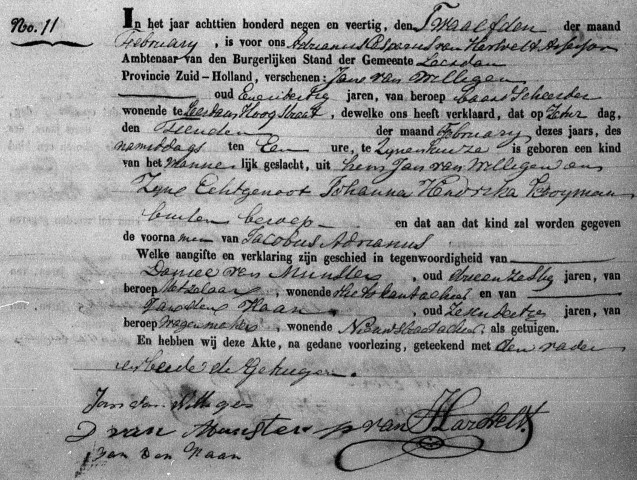 No. 11
In het jaar achttien honderd negen en veertig, den Twaalfden der maand
February, is voor ons Adrianus van
Ambtenaar van den Burgerlijken Stand der Gemeente Leerdam
Provincie Zuid-Holland, verschenen: Jan van Willigen
oud jaren, van beroep Baard Scheerder
wonende te Leerdam Hoog Straat, dewelke ons heeft verklaard, dat op Zatur dag,
den Tienden der maand February dezes jaars, des
namiddags te Een ure, te Zynen huize is geboren een kind
van het Manne lijk geslacht, uit hem Jan van Willigen en
Zyne Echtgenoot Johanna Hendrika Kooyman
buiten beroep en dat aan dat kind zal worden gegeven
de voorna men van Jacobus Adrianus
Welke aangifte en verklaring zijn geschied in tegenwoordigheid van
Daniel van Munster, oud drieenzestig jaren, van
beroep Metselaar, wonende alhier en van
Jan den Haan, oud jaren, van
beroep Wagenmaker, wonende Nieuwstraat alhier, als getuigen.
En hebben wij deze Akte, na gedane voorlezing, geteekend met den vader
en beide de Getuigen.
Jan van Willige
D van Munster van Hartvelt
Jan den Haan